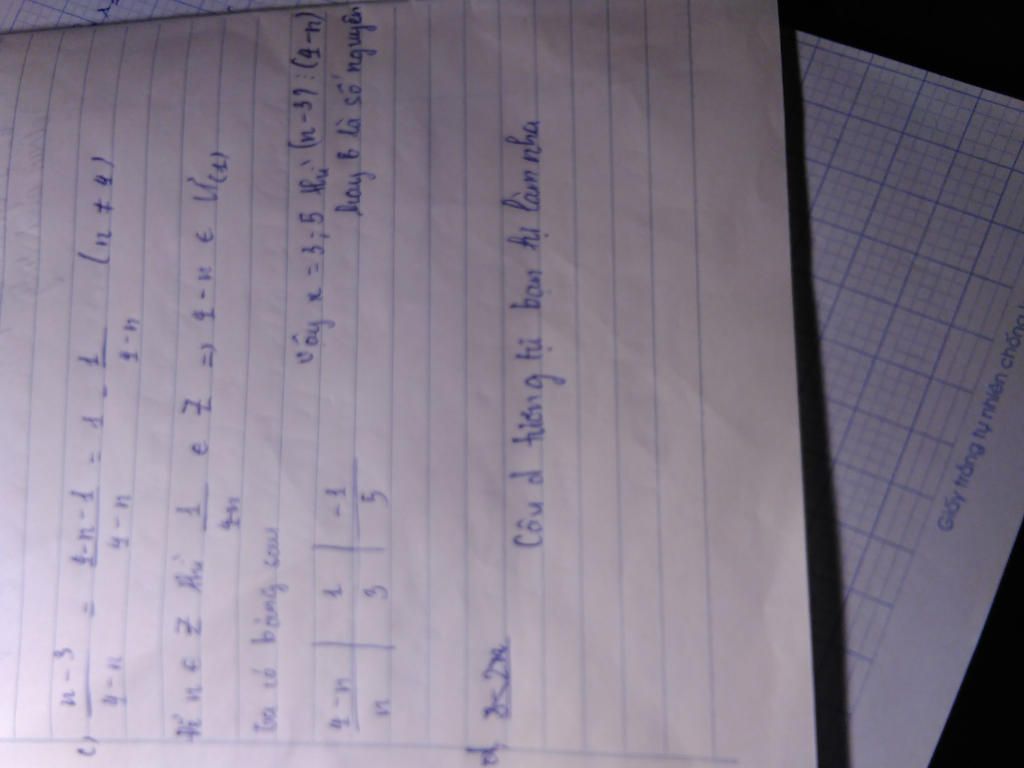 c) n-3/4-n = 4-n-1/4-n = 1 - 1/4-n (n ≠ 4)
Để n ∈ Z thì 1/4-n ∈ Z => 4-n ∈ Ư(1)
Ta có bảng sau
4-n | 1 | -1
n | 3 | 5
Vậy x = 3; 5 thì (n-3) ⋮ (4-n)
hay B là số nguyên
d,
Câu d tương tự bạn tự làm nha
Giấy trắng tự nhiên chống